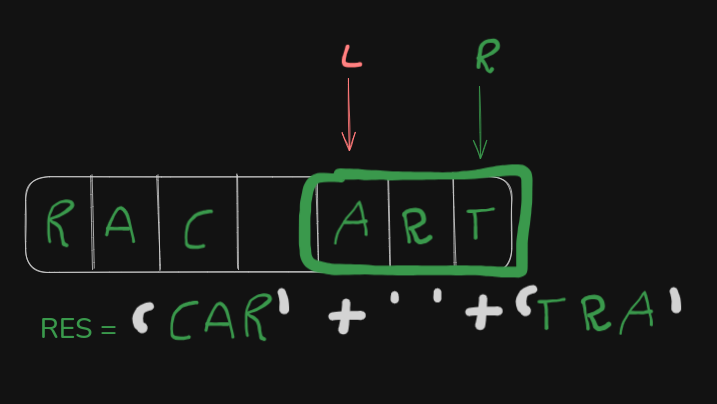 L R
R A C A R T
RES = 'CAR' + ' ' + 'TRA'